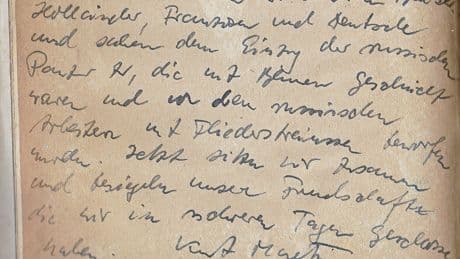 Holländer, Franzosen und Deutsche
und sahen dem Einzug der russischen
Panzer zu, die mit Blumen geschmückt
waren und von den russischen
Arbeitern mit Fliedersträussen beworfen
wurden. Jetzt sitzen wir zusammen
und besiegeln unser Freundschaft
die wir in schweren Tagen geschlossen
haben. Kurt